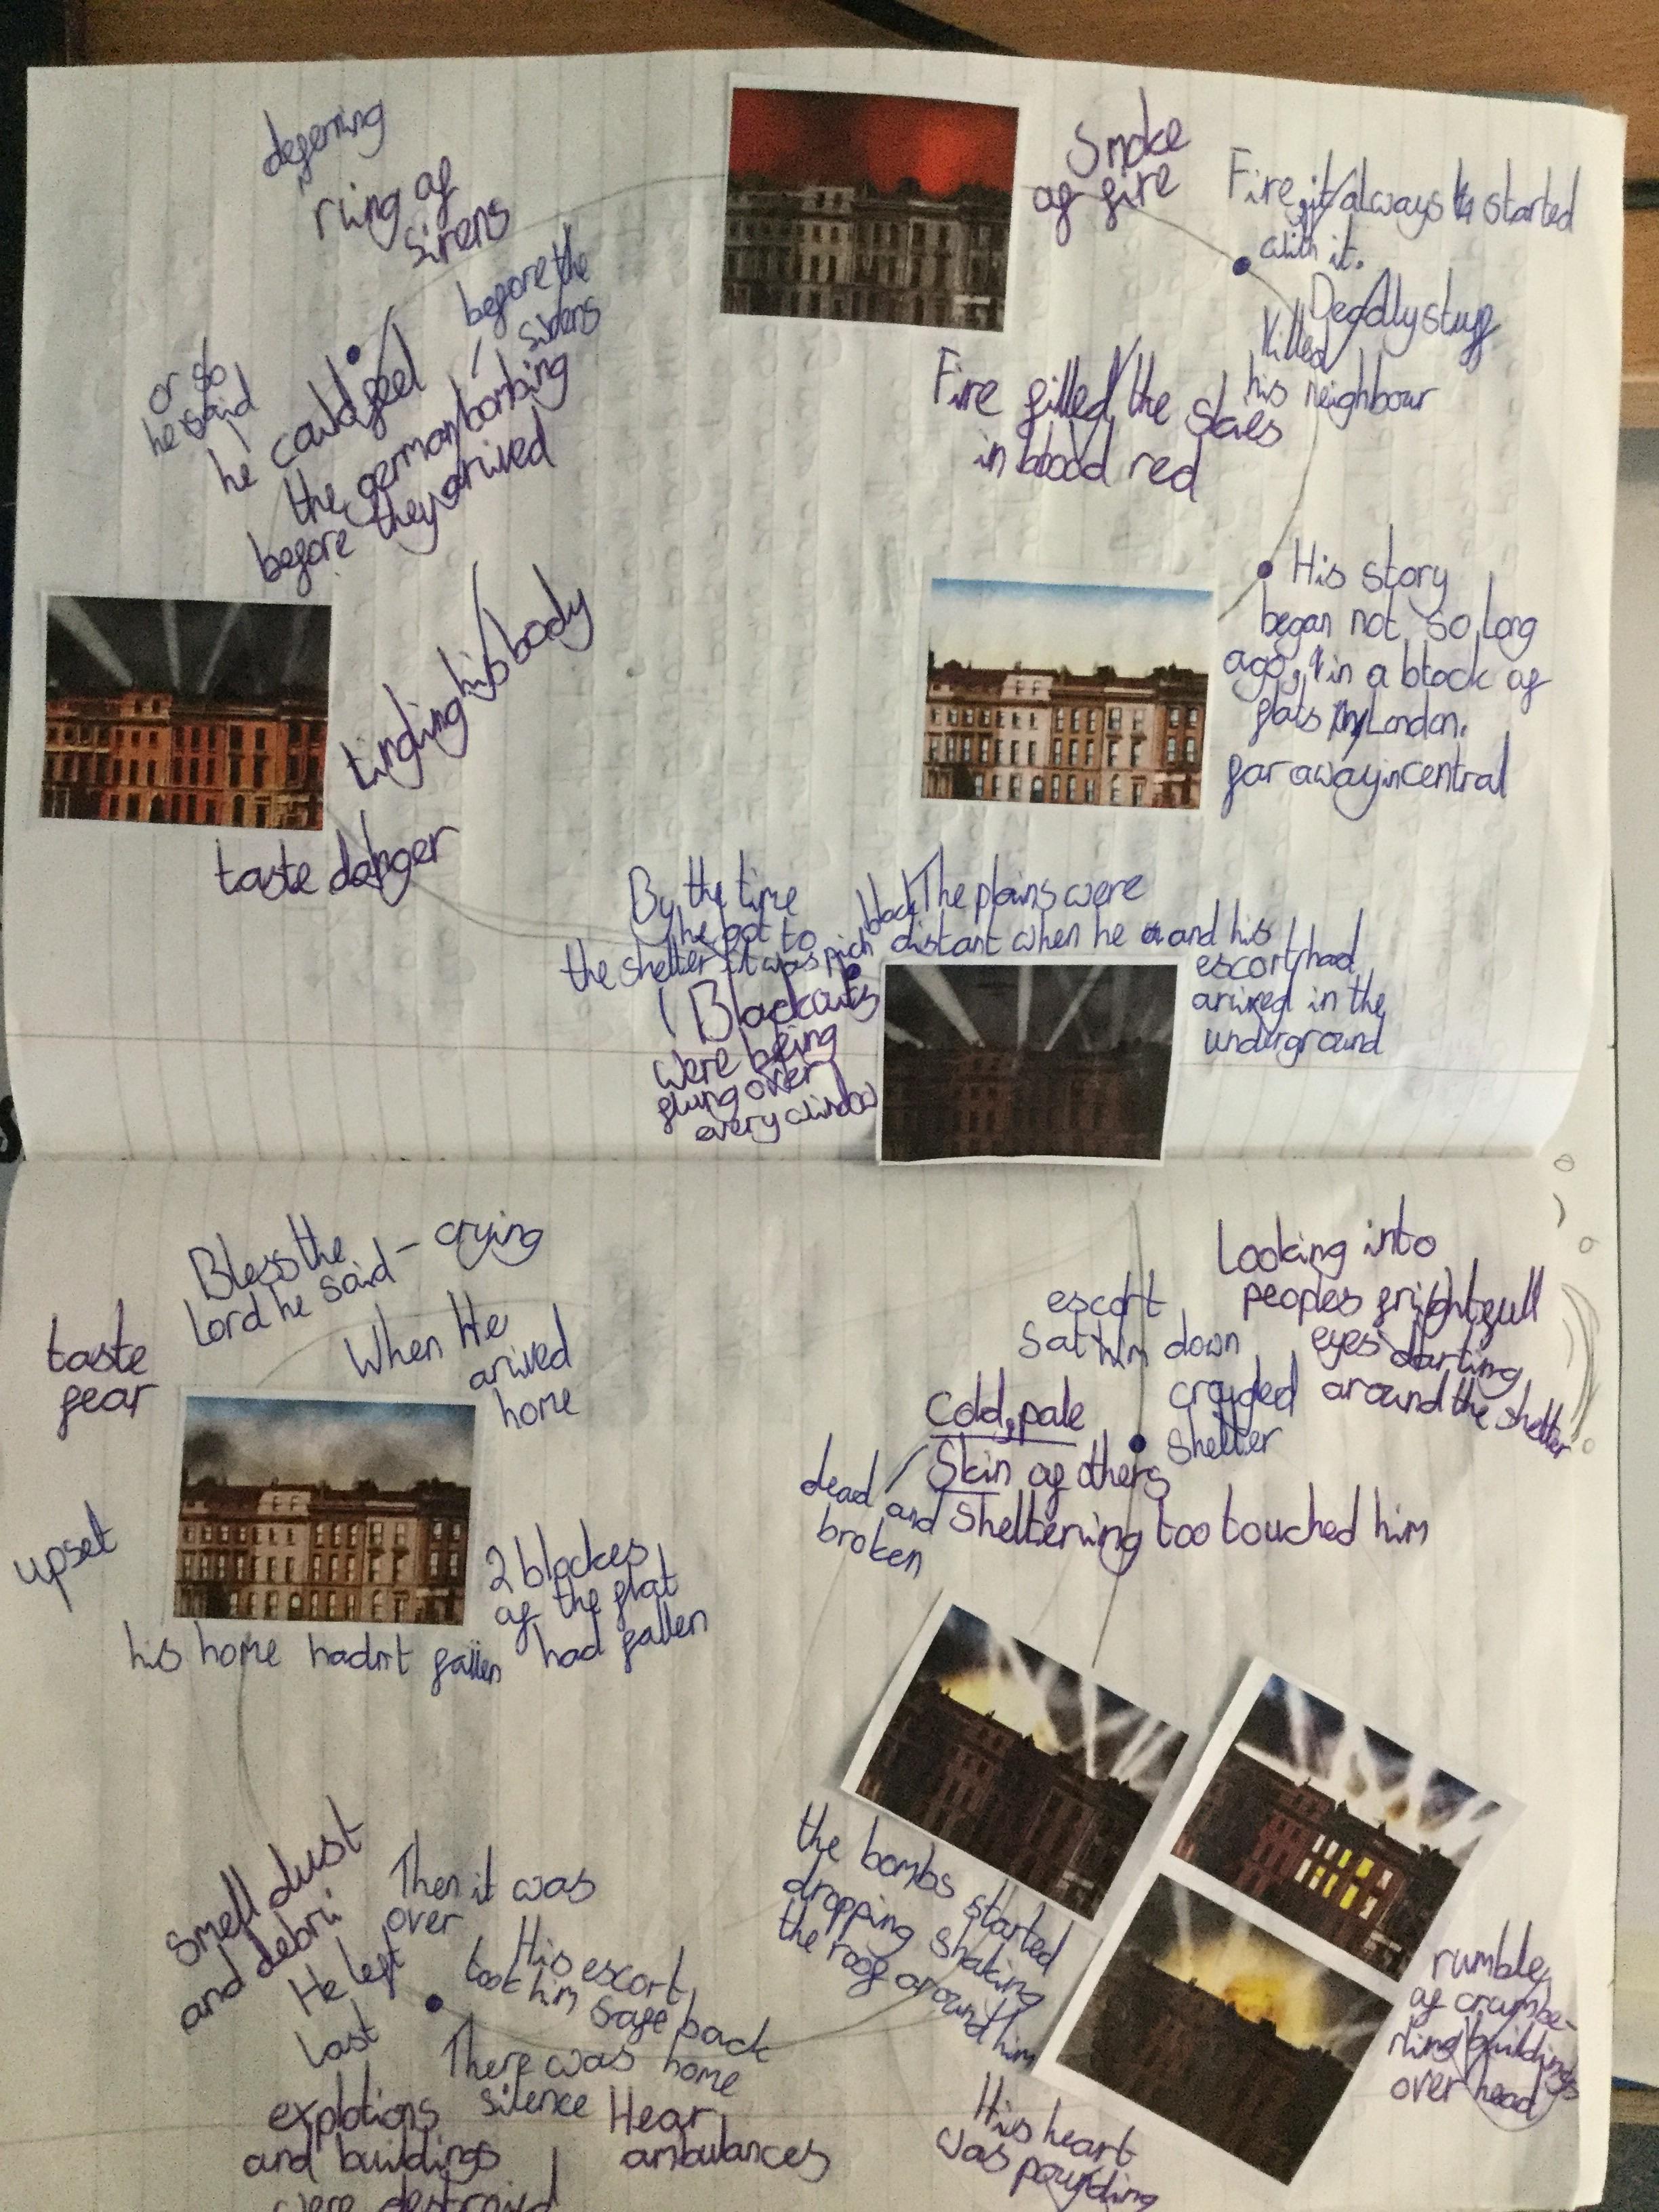 defening
ring of
sirens
before the
sirens
or so
he said
he could feel
the german bombing
before they arrived
tingling his body
taste danger
Smoke
of fire
Fire, it always started
with it.
Deadly stuff
killed
his neighbour
Fire filled the skies
in blood red
His story
began not so long
ago, in a block of
flats in London.
far away in central
By the time
he got to
the shelter it was pich
black
The plains were
distant when he and his
escort had
arived in the
underground
Blackouts
were being
flung over
every window
Bless the
lord he said - crying
When He
arived
home
taste
fear
upset
2 blockes
of the flat
had fallen
his home hadn't fallen
Looking into
peoples frightfull
eyes darting
around the shelter
escort
Sat him down
crowded
shelter
Cold, pale
Skin of others
dead and
broken
sheltering too touched him
the bombs started
dropping shaking
the roof around him
rumble
of crumbe-
rling buildings
over head
His heart
was pounding
smell dust
and debri
Then it was
over
He left
last
His escort
took him safe back
home
There was
silence
explotions
and buildings
were destroied
Hear
ambulances